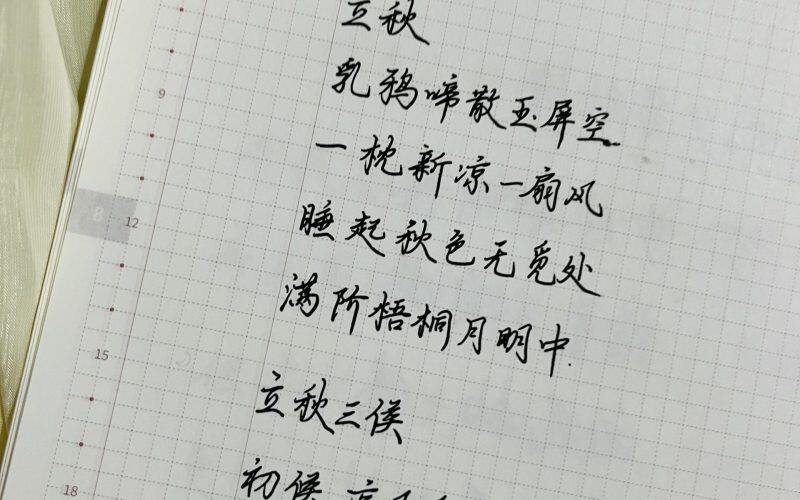 立秋
乳鸦啼散玉屏空
一枕新凉一扇风
睡起秋色无觅处
满阶梧桐月明中
立秋三侯
初候
9
8
12
15
18